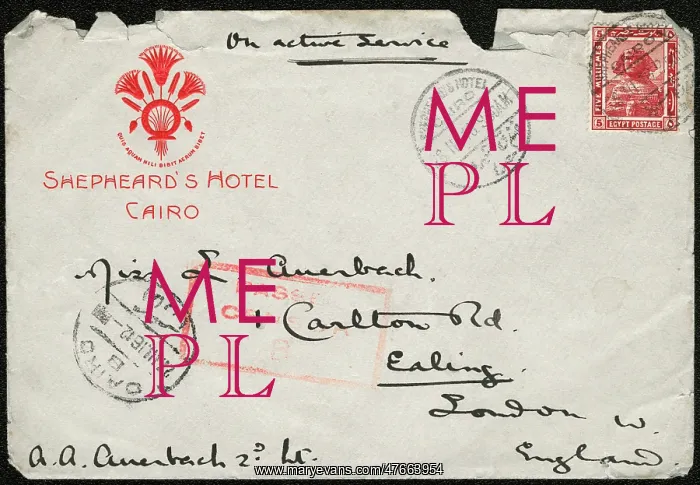 On active Service
FIVE MILLIEMES
5
EGYPT POSTAGE
QUID AQUAM NILI BIBIT AERUM BIBET
SHEPHEARD'S HOTEL
CAIRO
HOTEL
ME
PL
Miss L Auerbach.
PASSE
4 Carlton Rd.
Ealing.
London W.
England
CAIRO
ME
PL
A. A. Auerbach 2nd Lt.
www.maryevans.com/47663954